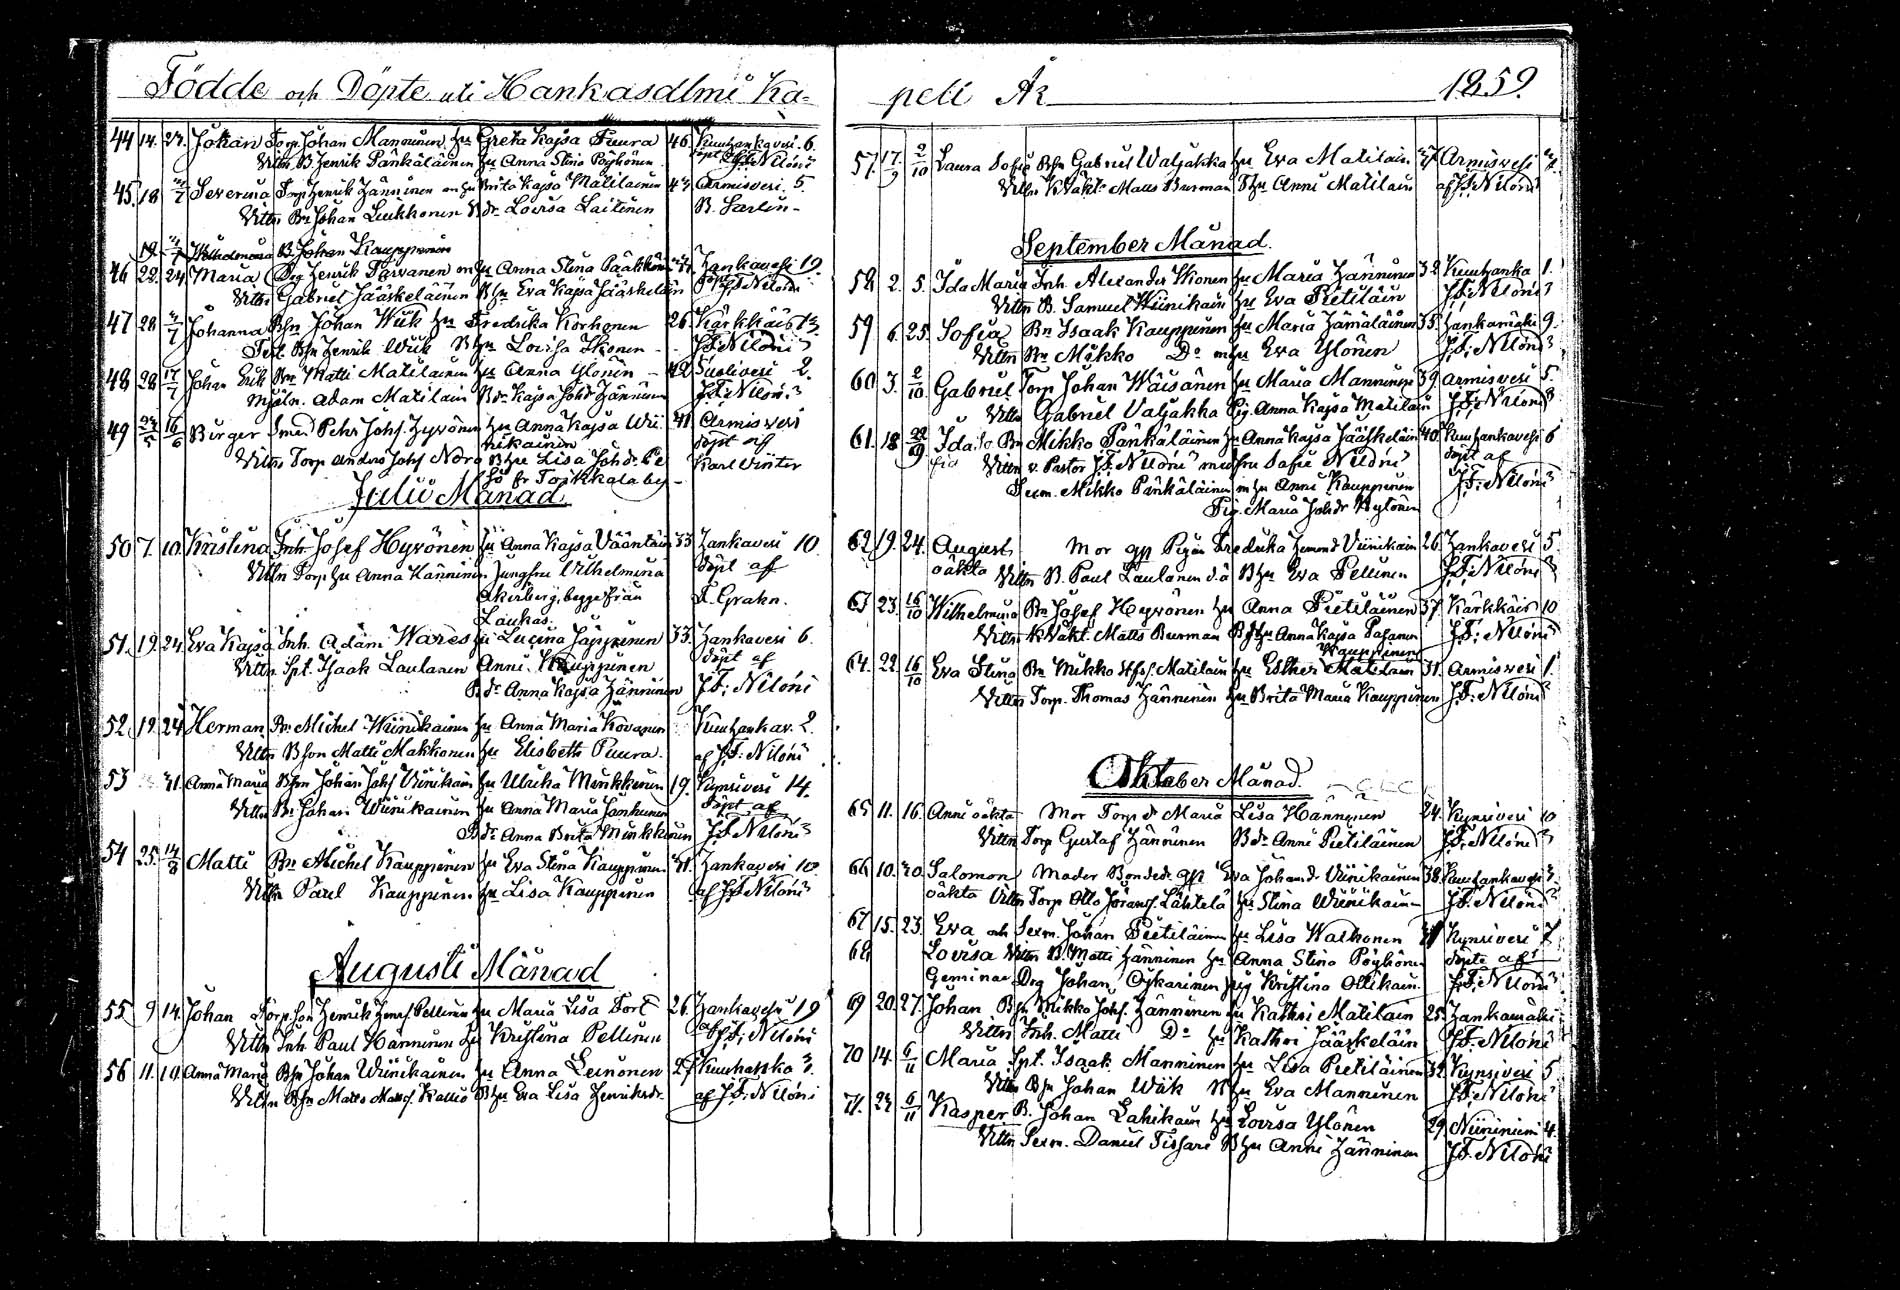 Födde och Döpte uti Hankasalmi Ka-
44 14. 27. Johan Torp. Johan Manninen hu Greta Kajsa Puura 46. Kuuhankavesi. 6.
Vittn B. Henrik Pänkäläinen hu Anna Stina Pöyhönen döpt af J.F. Niloni
45. 18 Severina Torp Henrik Hänninen hu Brita Kajsa Matilainen Armisvesi. 5.
Vittn Bn Johan Liukkonen Bdr Lovisa Laitinen B. Sarlin-
19. Wilhelmina B Johan Kauppinen
46 22. 24 Maria Drg Henrik Parvanen hu Anna Stina Pääkkön Hankavesi 19.
Vittn Gabriel Jääskeläinen Bhu Eva Kajsa Jääskeläin J.F. Niloni
47 28 Johanna Bsn Johan Wiik hu Fredrika Korhonen 26. Kärkkäis
Bsn Henrik Wiik Bhu Lovisa Ikonen - J.F. Niloni
48 28 17/7 Johan Erik Bn Matti Matilainen hu Anna Ylönen - 42 Suolivesi 2.
Mjöln. Adam Matilain Bdr Kajsa Johdr Hänninen J.F. Niloni
49 16/6 Birger Smed Petr Johs. Hyvönen hu Anna Kajsa Wii- 41. Armisvesi
nikainen döpt af
Vittn Torp Anders Johs Nöra Bhu Lisa Johdr Karl Winter
fr Toikkala by -
Julii Månad
50 7. 10. Kristina Inh. Josef Hyvönen hu Anna Kajsa Vääntäin 33 Hankavesi 10.
Vittn Torp hu Anna Hänninen Jungfru Vilhelmina döpt af
Åkerberg, begge från F. Grahn.
Laukas.
51. 19. 24 Eva Kajsa Inh. Adam Wares hu Lucina Jäppinen 33. Hankavesi 6.
Vittn Spt. Isaak Laulanen Anni Kauppinen döpt af
Bdr Anna Kajsa Hänninen J.F. Niloni
52. 19. 24 Herman Bn Michel Wiinikainen hu Anna Maria Kovanen Kuuhankav. 2.
Vittn Bson Matti Makkonen hu Elisbeth Puura. af J.F. Niloni
53 31. Anna Maria Bsn Johan Johs Viinikain hu Ulrika Minkkinen 19. Kynsivesi 14.
Vittn Bn Johan Wiinikainen hu Anna Maria Janhunen döpt af
Bdr Anna Brita Minkkinen J.F. Niloni
54 25. 14/8 Matti Bn Michel Kauppinen hu Eva Stina Kauppinen 31. Hankavesi 10.
Vittn Paul Kauppinen hu Lisa Kauppinen af J.F. Niloni
Augusti Månad
55 9 14. Johan Torp.son Henrik Henrs. Pellinen hu Maria Lisa Torl 26. Hankavesi 19
Vittn Inh Paul Hänninen hu Kristina Pellinen af J.F. Niloni
56 11. 14. Anna Maria Bsn Johan Wiinikainen hu Anna Leinonen 27 Kuuhanka 3.
Vittn Bsn Matts Matts. Kallio Bhu Eva Lisa Henriksdr. af J.F. Niloni
pell År 1859.
57. 17/9 2/10 Laura Sofie Bsn Gabriel Waljakka hu Eva Matilain 27 Armisvesi
Vittn K.Väkt. Matts Burman Thu Anni Matilain af J.F. Niloni
September Månad.
58 2. 5. Ida Maria Inh. Alexander Ikonen hu Maria Hänninen 32 Kuuhanka 1.
Vittn B. Samuel Wiinikain hu Eva Pietiläin J.F. Niloni
59 6. 25. Sofia Bn Isaak Kauppinen hu Maria Hämäläinen 35. Hankamäki 9.
Vittn Bn Mikko Do hu Eva Ylönen J.F. Niloni
60 3. 2/10 Gabriel Torp Johan Wäisänen hu Maria Manninen 39. Armisvesi 5.
Vittn Gabriel Valjakka Pig. Anna Kajsa Matilain J.F. Niloni
61. 18 Ida So Bn Mikko Pänkäläinen hu Anna Kajsa Jääskeläin 40. Kuuhankavesi 6
fia Vittn v. Pastor J.F. Niloni med fru Sofie Niloni döpt af
Sexm. Mikko Pänkäläinen m hu Anni Kauppinen J.F. Niloni
Pig. Maria Johdr Kytönen
62 19. 24. August Mor gp Pigan Fredrika Hemmd. Viinikain 26. Hankavesi 5.
oäkta Vittn B. Paul Laulanen d.ä Bhu Eva Pellinen J.F. Niloni
63 23. 16/10 Wilhelmina Bn Josef Heyvönen hu Anna Pietiläinen 37. Kärkkäis 10
Vittn K.Väkt. Matts Burman Bhu Anna Kajsa Pasanen J.F. Niloni
Kauppinen
64. 22. 16/10 Eva Stina Bn Mikko Matilain hu Esther Matilain 31. Armisvesi 1.
Vittn Torp. Thomas Hänninen hu Brita Maria Kauppinen J.F. Niloni
Oktober Månad.
65 11. 16. Anni oäkta Mor Torp dr Maria Lisa Hänninen 24. Kynsivesi 10
Vittn Torp Gustaf Hänninen Bdr Anni Pietiläinen J.F. Niloni
66 10. 20. Salomon Moder Bondedr. gp Eva Johandr. Viinikainen 38. Kuuhankavesi 3.
oäkta Vittn Torp Otto Lähtelä hu Stina Wiinikain- J.F. Niloni
67 15. 23. Eva och Sexm. Johan Pietiläinen hu Lisa Walkonen Kynsivesi 7
68 Lovisa Vittn B. Matti Hänninen hu Anna Stina Pöyhönen döpte af
Geminae Drg Johan Oykarinen Pig Kristina Ollikain. J.F. Niloni
69 20. 27. Johan Bsn Mikko Johs. Hänninen hu Kathri Matilain 25. Hankamäki
Vittn Inh. Matti Do hu Kathri Jääskeläin J.F. Niloni
70 14. 6/11 Maria Spt. Isaak Manninen hu Lisa Pietiläinen 32. Kynsivesi 5
Vittn Bsn Johan Wiik hu Eva Manninen J.F. Niloni
71. 6/11 Kasper B. Johan Lahikain hu Lovisa Ylönen 29. Niinimi 4.
Vittn Sexm. Daniel Tissari Bhu Anni Hänninen J.F. Niloni